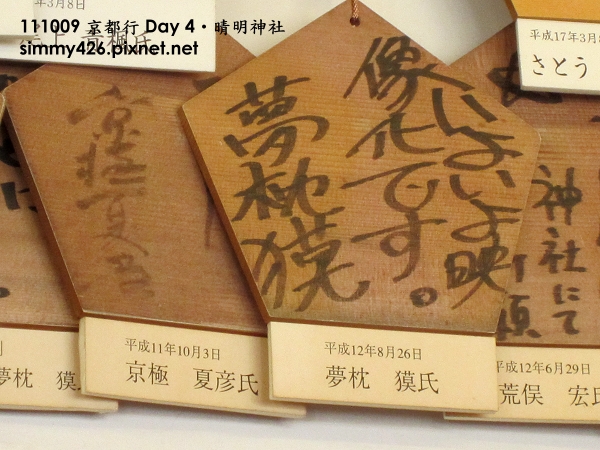 111009 京都行 Day 4・晴明神社
simmy426.pixnet.net
年3月8日
平成17年3月8
さとう
いよいよ映
像化です。
夢枕獏
京極夏彦
神社にて
平成11年10月3日
京極　夏彦氏
平成12年8月26日
夢枕　獏氏
平成12年6月29日
荒俣　宏氏
日
夢枕　獏